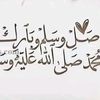 صل وسلم وبارك
محمد صلى الله عليه وس